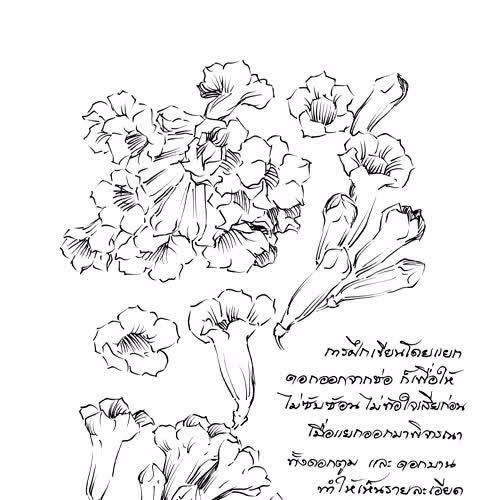 การฝึกเขียนโดยแยก
ดอกออกจากช่อ ก็เพื่อให้
ไม่ซับซ้อน ไม่ท้อใจเสียก่อน
เมื่อแยกออกมาพิจารณา
ทั้งดอกตูม และ ดอกบาน
ทำให้เห็นรายละเอียด